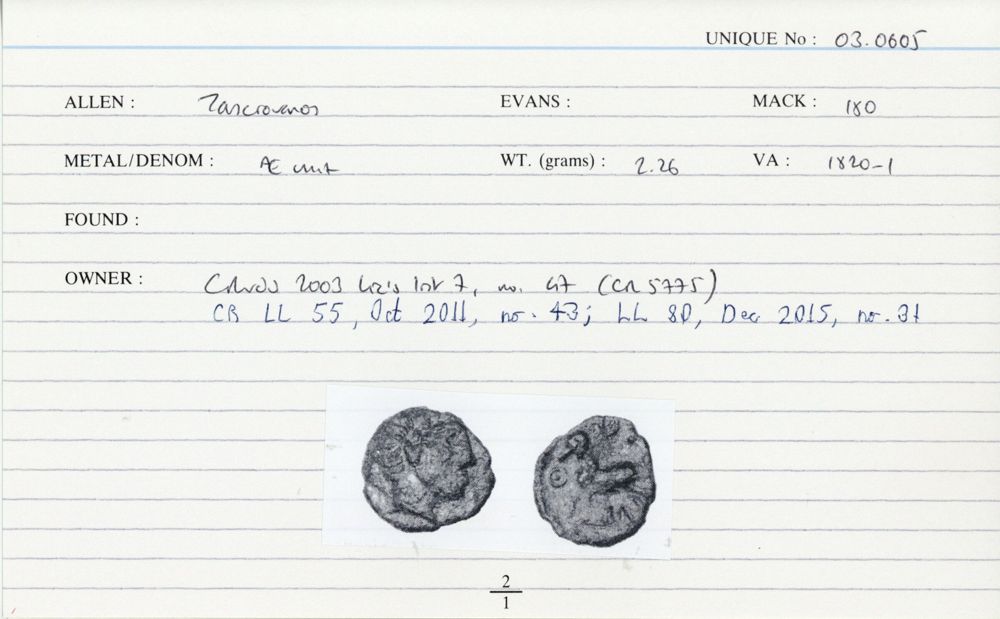 UNIQUE No : 03.0605
ALLEN : Tasciovanos EVANS : MACK : 180
METAL/DENOM : Æ unit WT. (grams) : 2.26 VA : 1820-1
FOUND :
OWNER : 2003 Liz's list 7, no. 47 (CR 5775)
CR LL 55, Oct 2011, no. 43; LL 80, Dec 2015, no. 31
2
1